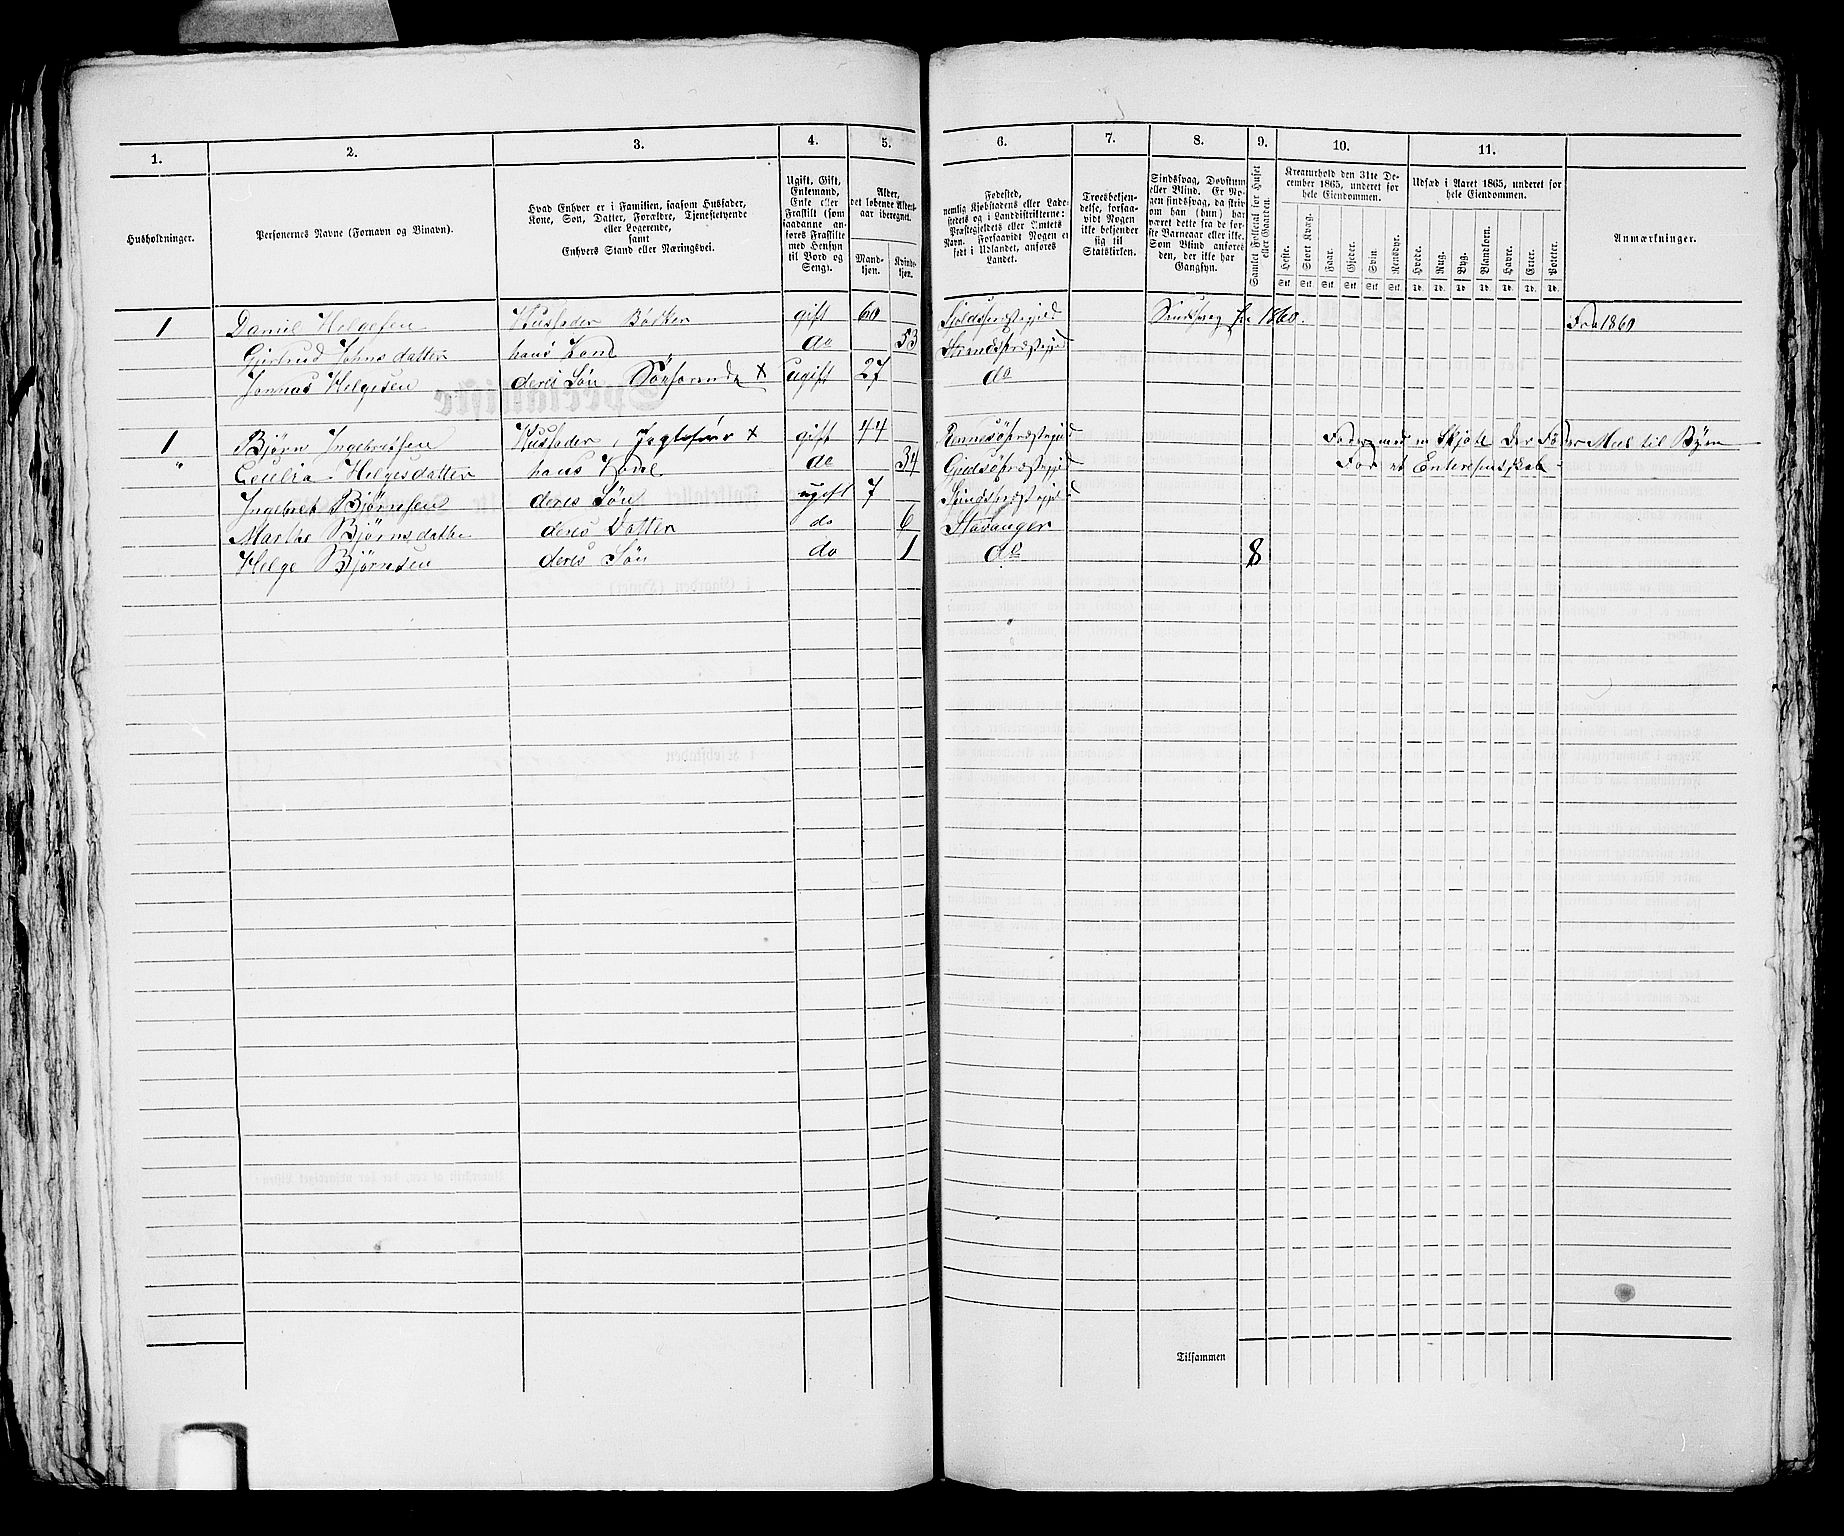 1. 2. 3. 4. 5. 6. 7. 8. 9. 10. 11.
Husholdninger.
Personernes Navne (Fornavn og Binavn).
Hvad Enhver er i Familien, saasom Husfader,
Kone, Søn, Datter, Forældre, Tjenestetyende
eller Logerende,
samt
Enhvers Stand eller Næringsvei.
Ugift, Gift,
Enkemand,
Enke eller
Fraskilt (som
saadanne an-
føres Fraskilte
med Hensyn
til Bord og
Seng).
Alder,
det løbende Alders-
aar iberegnet.
Mand-
kjøn.
Kvinde-
kjøn.
Fødested,
nemlig Kjøbstadens eller Lade-
stedets og i Landdistrikterne:
Præstegjeldets eller Sognets
Navn. Forsaavidt Nogen er
født i Udlandet, anføres
Landet.
Troesbekjen-
delse, forsaa-
vidt Nogen
ikke bekjender
sig til
Statskirken.
Sindssvag, Døvstum
eller Blind. Er No-
gen sindssvag, da skriv
om han (hun) har
været dette fra de før-
ste Barneaar eller ikke.
Som Blind anføres
den, der ikke har
Gangsyn.
Samlet Folketal for Huset
eller Gaarden.
Kreaturhold den 31te De-
cember 1865, underet for
hele Eiendommen.
Heste. Stort Kvæg. Faar. Gjeder. Svin. Rensdyr.
Stk. Stk. Stk. Stk. Stk. Stk.
Udsæd i Aaret 1865, underet for
hele Eiendommen.
Hvede. Rug. Byg. Blandkorn. Havre. Erter. Poteter.
Td. Td. Td. Td. Td. Td. Td.
Anmærkninger.
1 Daniel Helgesen Husfader Bødker gift 60 Sjoldspræstegjeld Sindsvag fra 1860. Fra 1860
Gjertrud Johnsdatter hans Kone do 53 Strandspræstegjeld
Jonnas Helgesen deres Søn Søfarende X ugift 27 do
1 Bjørn Ingebretsen Husfader, X gift 44 Rennesøpræstegjeld
" Cecilia Helgesdatter hans Kone do 34 præstegjeld
Ingebret Bjørnsen deres Søn ugift 7 Strandspræstegjeld
Marthe Bjørnsdatter deres Datter do 6 Stavanger
Helge Bjørnsen deres Søn do 1 do 8
Tilsammen